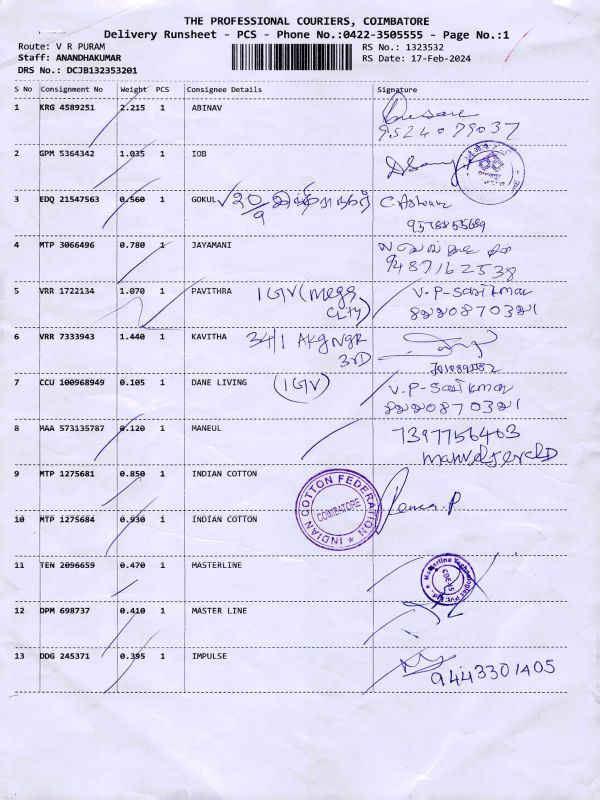 THE PROFESSIONAL COURIERS, COIMBATORE
Delivery Runsheet - PCS - Phone No.:0422-3505555 - Page No.:1
Route: V R PURAM RS No.: 1323532
Staff: ANANDHAKUMAR RS Date: 17-Feb-2024
DRS No.: DCJB132353201
S No Consignment No Weight PCS Consignee Details Signature
1 KRG 4589251 2.215 1 ABINAV
9524079037
2 GPM 5364342 1.035 1 IOB
3 EDQ 21547563 0.560 1 GOKUL √ 20/9
4 MTP 3066496 0.780 1 JAYAMANI
9487162538
5 VRR 1722134 1.070 1 PAVITHRA 1GV (mega city) V.P-Sasikmar
8220870321
6 VRR 7333943 1.440 1 KAVITHA 34/1 AKGNGR
3RD
7 CCU 100968949 0.105 1 DANE LIVING (1GV) V.P-Sasikmar
8220870321
8 MAA 573135787 0.120 1 MANEUL 7397756463
9 MTP 1275681 0.850 1 INDIAN COTTON
INDIAN COTTON FEDERATION
COIMBATORE
10 MTP 1275684 0.930 1 INDIAN COTTON
11 TEN 2096659 0.470 1 MASTERLINE
12 DPM 698737 0.410 1 MASTER LINE
13 DDG 245371 0.395 1 IMPULSE
9443301405